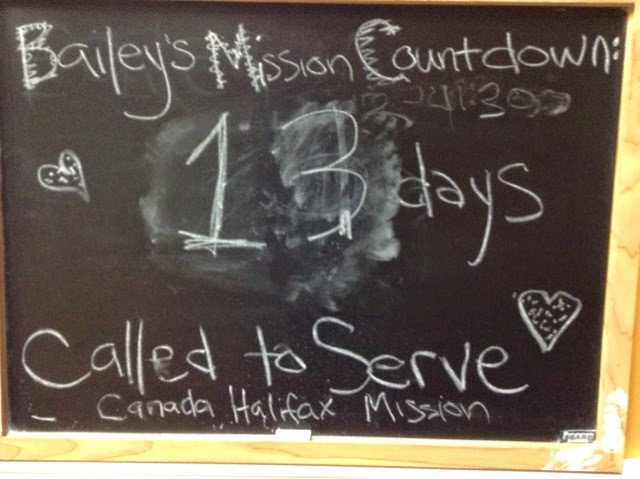 Bailey's Mission Countdown:
13 days
Called to Serve
Canada Halifax Mission